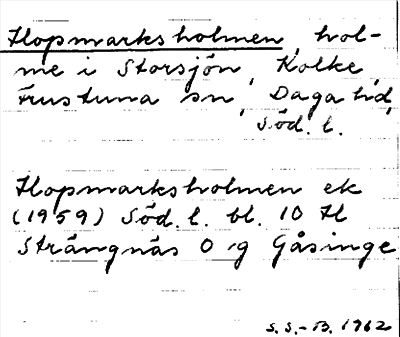 Hopmarksholmen, hol-
me i Storsjön, Kolke,
Frustuna sn, Daga hd,
Söd. l.
Hopmarksholmen ek
(1959) Söd. l. bl. 10 H
Strängnäs O :g Gåsinge
S. S.-B. 1962